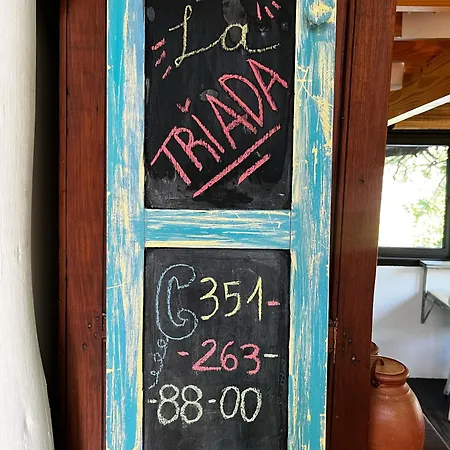 La
TRIADA
351-
-263-
-88-00